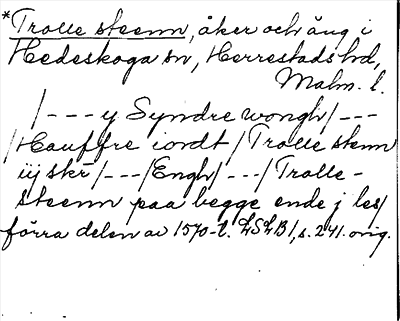 *Trolle steenn, åker och äng i
Hedeskoga sn, Herrestads hd,
Malm. l.
/---y Syndre wongh/---
/Hauffre iordt/Trolle stenn
iij skr/---/Engh/---/Trolle-
steenn paa begge ende j les/
förra delen av 1570-t. LSLB1, s. 241. orig.